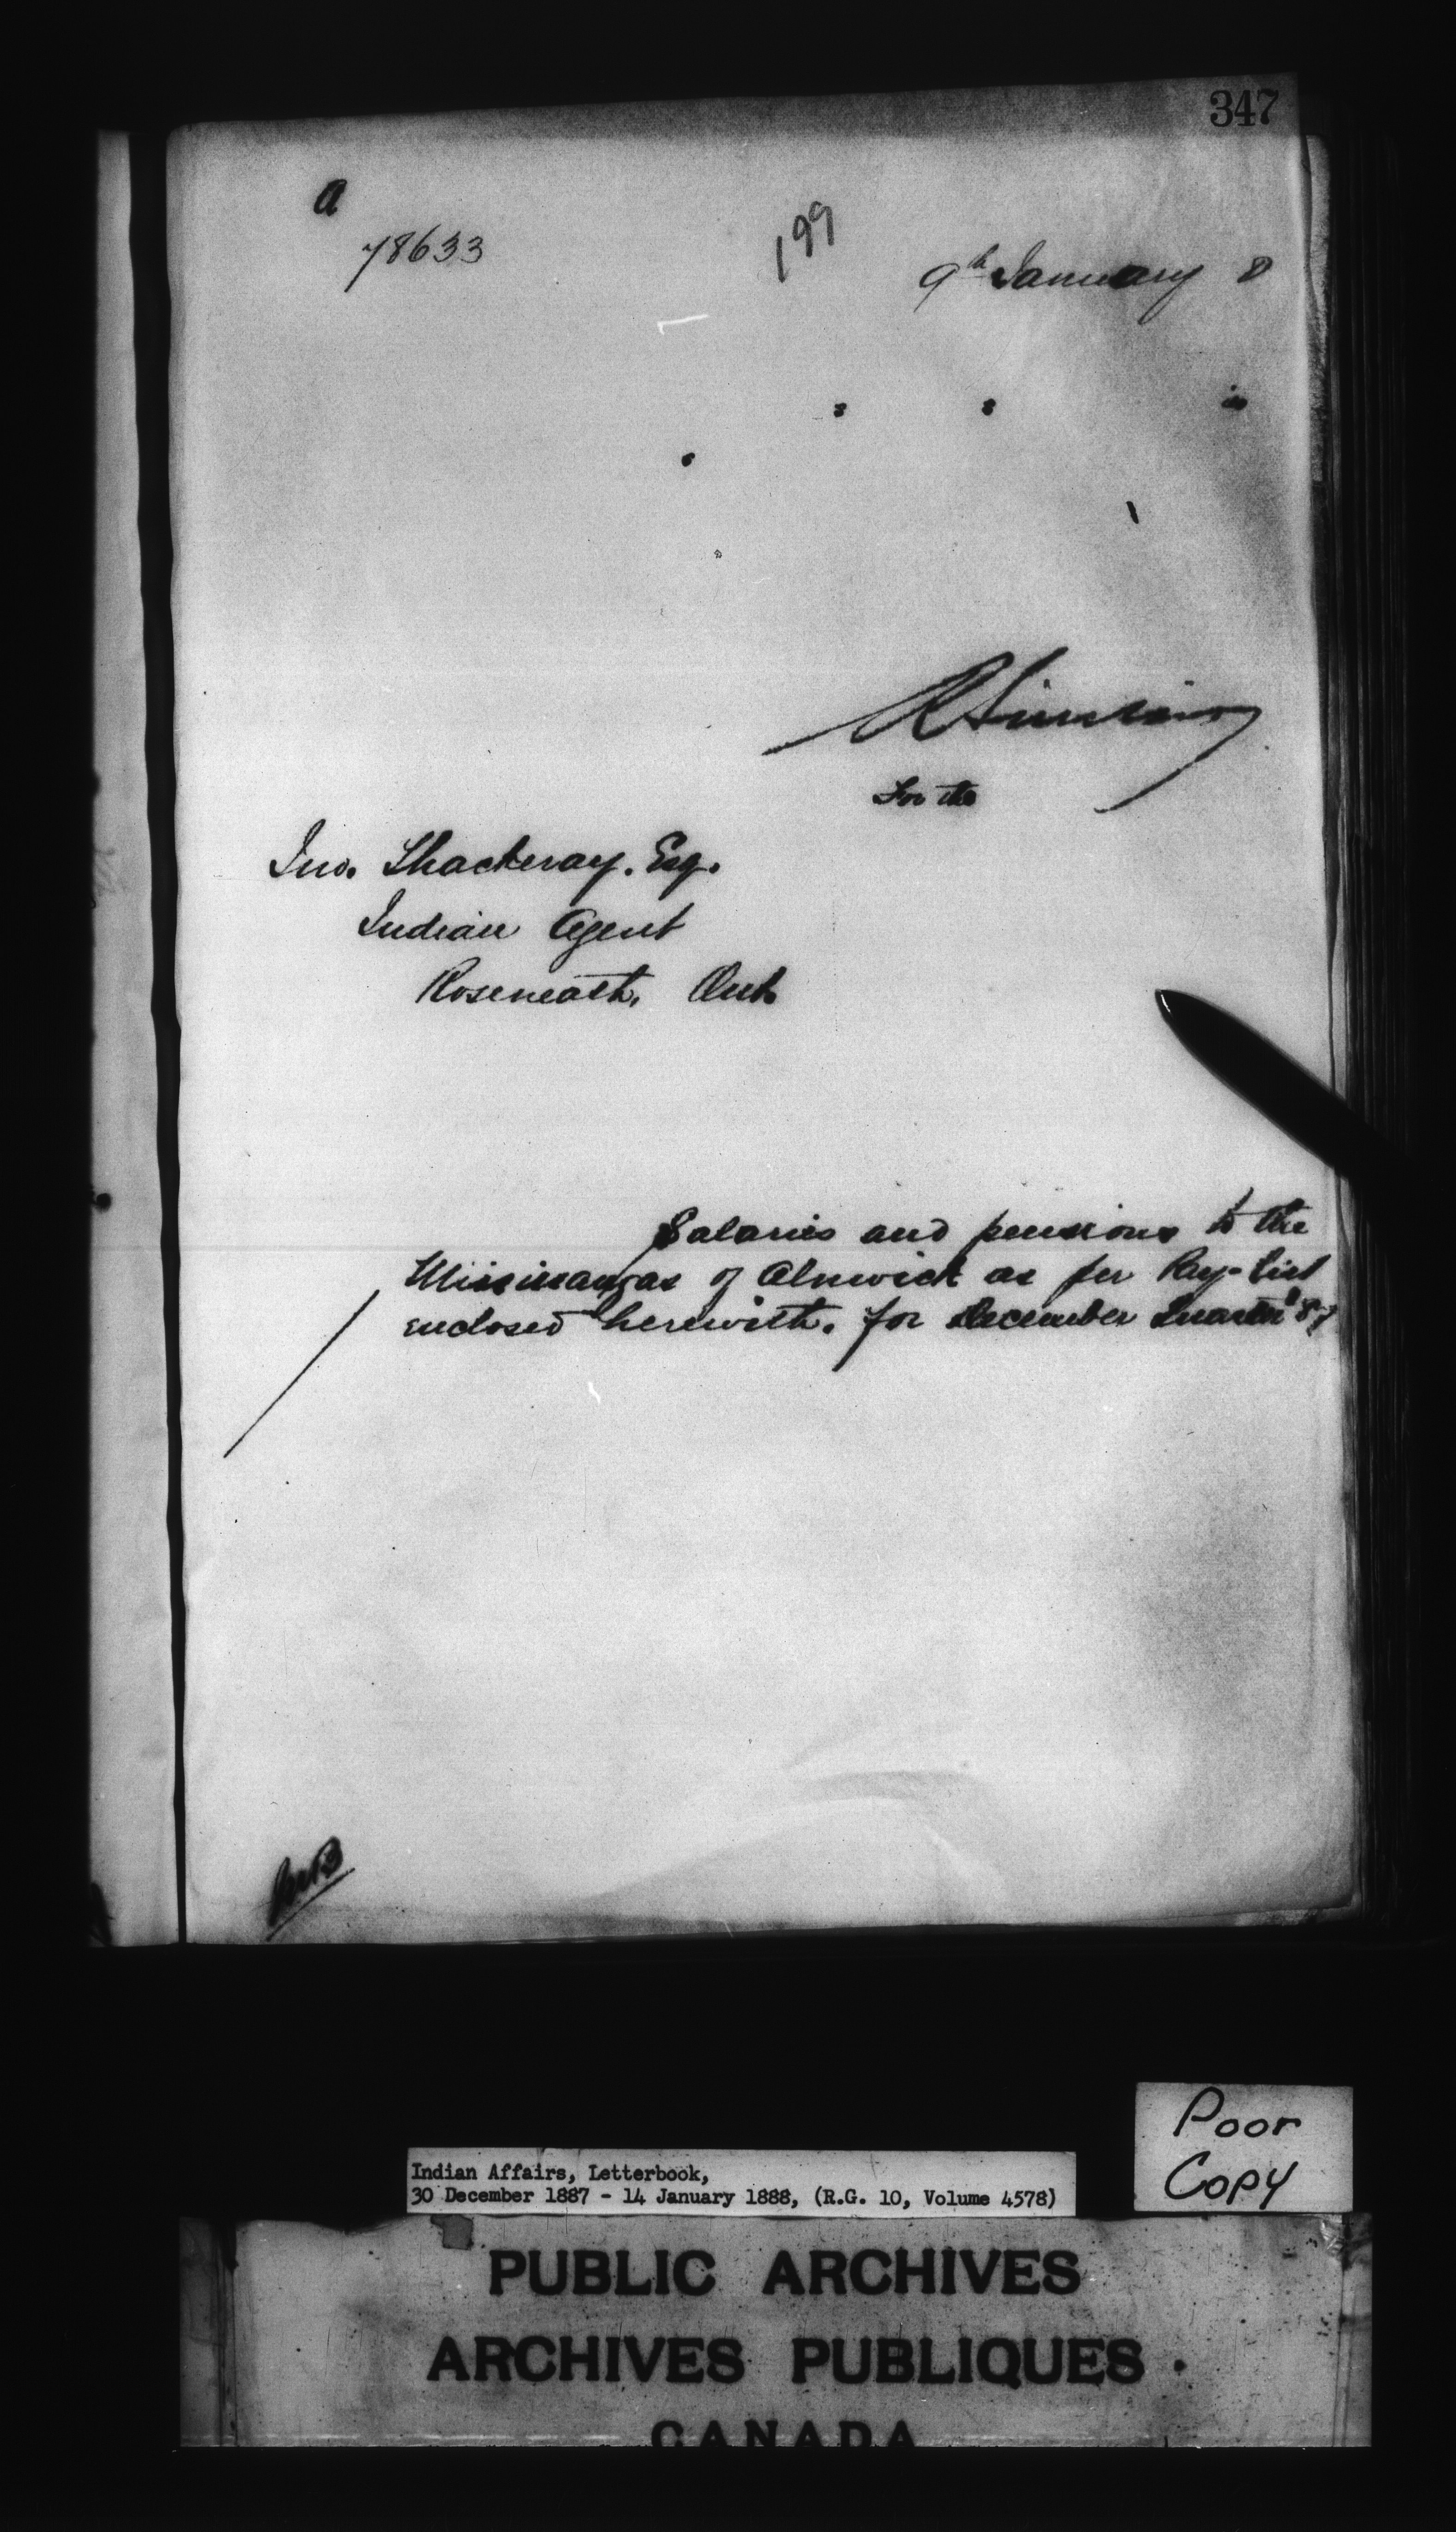 347
a
78633
199
9th January 8
R Sinclair
For the
Jno. Thackeray. Esq.
Indian Agent
Roseneath, Ont.
Salaries and pensions to the
Mississaugas of Alnwick as per Pay-List
enclosed herewith. for December Quarter '87
Poor
Copy
Indian Affairs, Letterbook,
30 December 1887 - 14 January 1888, (R.G. 10, Volume 4578)
PUBLIC ARCHIVES
ARCHIVES PUBLIQUES
CANADA